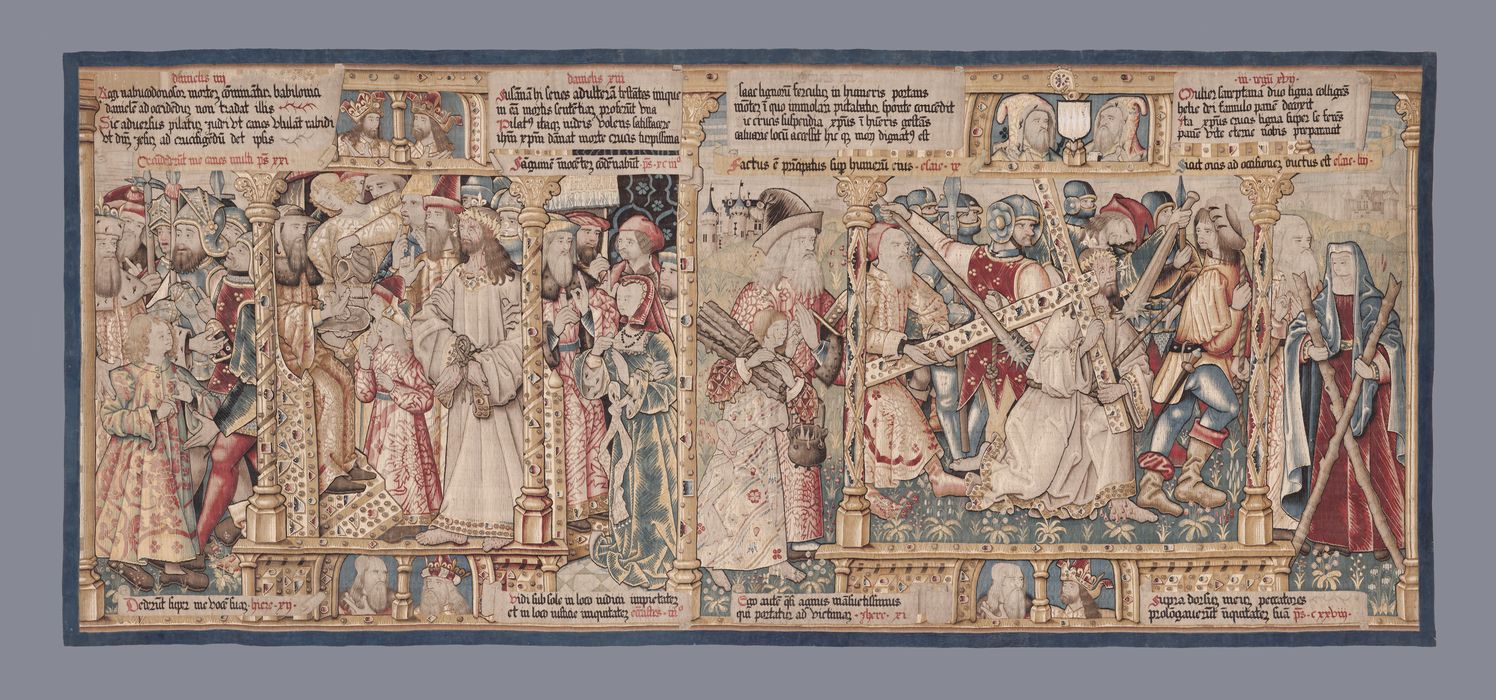 danielis iiij
Regi nabucodonosor mortem cominatur babilonici
danielem ad occidendum non tradat illis
Sic adversus pilatum iudei ut canes ululant rabidi
ut det ipsis
Circumdederunt me canes multi ps xxi
danielis xiii
Susannam hi senes adulteram testantes inique
in eam mortis sententiam proferunt una
Pilatus itaque iudeis volens satisfacere
ihesum xpm damnat morte crucis turpissima
Sanguinem innocentem condemnabunt ps xciii
Isaac lignorum ferculum in humeris portans
montem in quo immolari putabatur sponte conscendit
sic crucis suspendia xpus in humeris gestans
calvarie locum accessit hic mori dignatus est
Factus est principatus super humerum eius esaie ix
iii regum xvii
Mulier sareptana duo ligna colligens
helie dei famulo panem decoxit
Ita xpus crucis ligna super se ferens
panem vite eterne nobis preparavit
Sicut ovis ad occisionem ductus est esaie liii
Dederunt super me vocem suam hiere xii
Vidi sub sole in loco iudicii impietatem
et in loco iustitie iniquitatem ecclastes iii
Ego autem quasi agnus mansuetissimus
qui portatur ad victimam Jhere xi
Supra dorsum meum peccatores
prologaverunt iniquitatem suam ps cxxviii